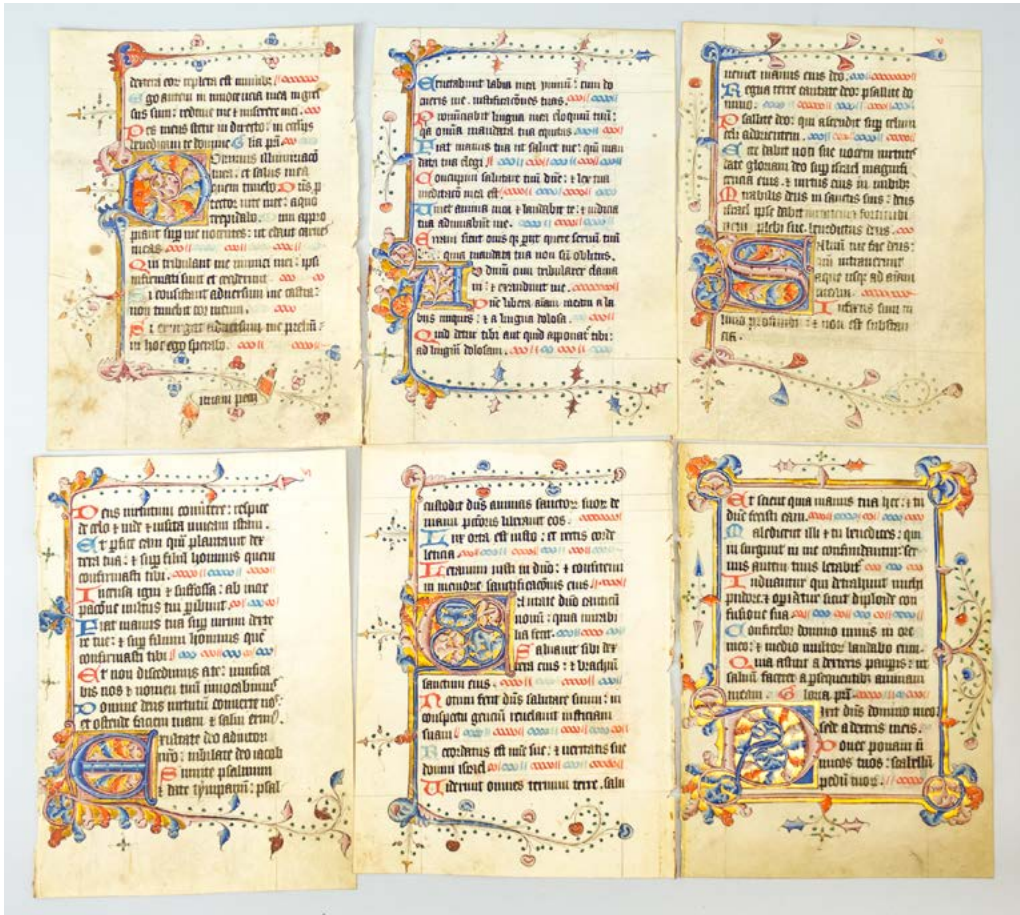 dextera eor repleta est munibȝ
Ego autem in innocētia mea ingres
sus sum : redime me et miserere mei .
Pes meus stetit in directo : in ecclesiis
benedicam te domine Glia pr̄i
Ominus illuminacō
mea : et salus mea
quem timebo Dn̄s p
tector vite mee : a quo
trepidabo . um appro
piant sup me nocentes : ut edant carnes
meas
Qui tribulant me inimici mei : ipsi
infirmati sunt et ceciderunt .
Si consistant adversum me castra :
non timebit cor meum .
Si exurgat adversum me preliū :
in hoc ego sperabo .
Eructabunt labia mea ymnū : cum do
cueris me . iustificacōnes tuas .
Pronunciabit lingua mea eloquiū tuū :
qa omīa mandata tua equitas
Fiat manus tua ut saluet me : qm̄ man
data tua elegi
Concupiui salutare tuū dn̄e : et lex tua
meditacō mea est .
Uiuet anima mea et laudabit te : et iudicia
tua adiuuabunt me .
Erraui sicut ouis q̄ perijt quere seruū tuū
quia mandata tua non sū oblitus .
D dn̄m cum tribularer clama
ui : et exaudiuit me .
Dn̄e libera aīam meam a la
biis iniquis : et a lingua dolosa .
Quid detur tibi aut quid apponat tibi :
ad linguā dolosam .
ueniet manus eius deo .
Regna terre cantate deo : psallite do
mino :
Psallite deo : qui ascendit sup celum
celi ad orientem .
Ecce dabit uoci sue uocem uirtutis
date gloriam deo sup israel magnifi
cencia eius . et uirtus eius in nubibȝ
Mirabilis deus in sanctis suis : deus
israel ipse dabit
plebi sue . benedictus deus .
aluum me fac deus :
qm̄ intrauerunt
aque usqȝ ad aīam
meam .
Infixus sum in
limo profundi : et non est substan
cia .
Deus uirtutum conuertere : respice
de celo et uide et uisita uineam istam .
Et perfice eam quā plantauit dex
tera tua : et sup filiū hominis quem
confirmasti tibi .
Incensa igni et suffossa : ab incre
pacōne uultus tui peribunt .
Fiat manus tua sup uirum dexte
re tue : et sup filium hominis quē
confirmasti tibi
Et non discedimus a te : uiuifica
bis nos et nomen tuū inuocabimus
Domine deus uirtutū conuerte nos :
et ostende faciem tuam et salui erimꝰ .
Exultate deo adiutori
nr̄o : iubilate deo iacob
Sumite psalmum
et date tympanū : psal
custodit dn̄s animas sanctor suor de
manu pctōris liberauit eos .
Lux orta est iusto : et rectis corde
leticia .
Letamini iusti in dn̄o : et confitemini
memorie sanctificacōnis eius .
antate dn̄o canticū
nouū : quia mirabi
lia fecit .
Saluauit sibi dex
tera eius : et brachiū
sanctum eius .
Notum fecit dn̄s salutare suum : in
conspectu genciū reuelauit iusticiam
suam
Recordatus est mīe sue : et ueritatis sue
domui israel
Uiderunt omnes termini terre . salu
Et sciant quia manus tua hec : et tu
dn̄e fecisti eam .
Maledicent illi et tu benedices : qui
in surgunt in me confundantur : ser
uus autem tuus letabit̄
Induantur qui detrahunt michi
pudore : et operiātur sicut diploide con
fusione sua
Confitebor domino nimis in ore
meo : et medio multor laudabo eum .
Quia astitit a dextris pauperis : ut
saluā faceret a psequentibȝ animam
meam . Gloria pr̄i
ixit dn̄s domino meo :
sede a dextris meis .
Donec ponam ī
imicos tuos : scabellū
pedū tuor .